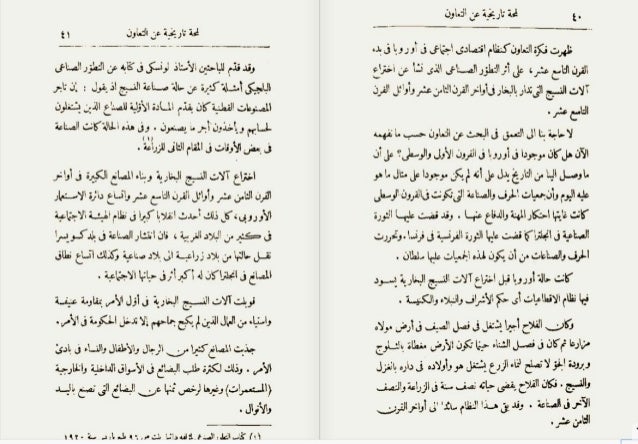 ٤٠ لمحة تاريخية عن التعاون
ظهرت فكرة التعاون كنظام اقتصادى اجتماعى فى أوروبا فى بدء
القرن التاسع عشر، على أثر التطور الصناعى الذى نشأ عن اختراع
آلات النسيج التى تدار بالبخار فى أواخر القرن الثامن عشر وأوائل القرن
التاسع عشر.
لا حاجة بنا الى التعمق فى البحث عن التعاون حسب ما نفهمه
الآن هل كان موجودا فى أوروبا فى القرون الأولى والوسطى؟ على أن
ما وصل الينا من التاريخ يدل على أنه لم يكن موجودا على مثال ما هو
عليه اليوم وأن جمعيات الحرف والصناعة التى تكونت فى القرون الوسطى
كانت غايتها احتكار المهنة والدفاع عنها. وقد قضت عليها الثورة
الصناعية فى انجلترا كما قضت عليها الثورة الفرنسية فى فرنسا. وتحررت
الحرف والصناعات من أن يكون لهذه الجمعيات عليها سلطان.
كانت حالة أوروبا قبل اختراع آلات النسيج البخارية يسود
فيها نظام الاقطاعيات أى حكم الأشراف والنبلاء والكنيسة.
وكان الفلاح أجيرا يشتغل فى فصل الصيف فى أرض مولاه
مزارعا ثم كان فى فصل الشتاء حينما تكون الأرض مغطاة بالثلوج
وبرودة الجو لا تصلح لنماء الزرع يشتغل هو وأولاده فى داره بالغزل
والنسيج. فكان الفلاح يقضى حياته نصف سنة فى الزراعة والنصف
الآخر فى الصناعة. وقد بقى هذا النظام سائدا الى أواخر القرن
الثامن عشر.
لمحة تاريخية عن التعاون ٤١
وقد قدّم للباحثين الأستاذ لونسكى فى كتابه عن التطور الصناعى
البلجيكى أمثلة كثيرة عن حالة صناعة النسيج اذ يقول: إن تاجر
المصنوعات القطنية كان يقدّم المادة الأولية للصناع الذين يشتغلون
لحسابهم و يأخذون أجر ما يصنعون. وفى هذه الحالة كانت الصناعة
فى بعض الأوقات فى المقام الثانى للزراعة.
اختراع آلات النسيج وبناء المصانع الكبيرة فى أواخر
القرن الثامن عشر وأوائل القرن التاسع عشر واتساع دائرة الاستعمار
الأوروبى، كل ذلك أحدث انقلابا كبيرا فى نظام الهيئة الاجتماعية
فى كثير من البلاد الغربية، فان انتشار الصناعة فى بلد كسويسرا
نقل حالتها من بلاد زراعية الى بلاد صناعية وكذلك اتساع نطاق
المصانع فى انجلترا كان له أكبر أثر فى حياتها الاجتماعية.
قوبلت آلات النسيج البخارية فى أول الأمر بمقاومة عنيفة
واستياء من العمال الذين لم يكبح جماحهم إلا تدخل الحكومة فى الأمر.
جذبت المصانع كثيرا من الرجال والأطفال والنساء فى بادئ
الأمر. وذلك لكثرة طلب البضائع فى الأسواق الداخلية والخارجية
(المستعمرات) وغيرها لرخص ثمنها عن البضائع التى تصنع باليد
والأنوال.